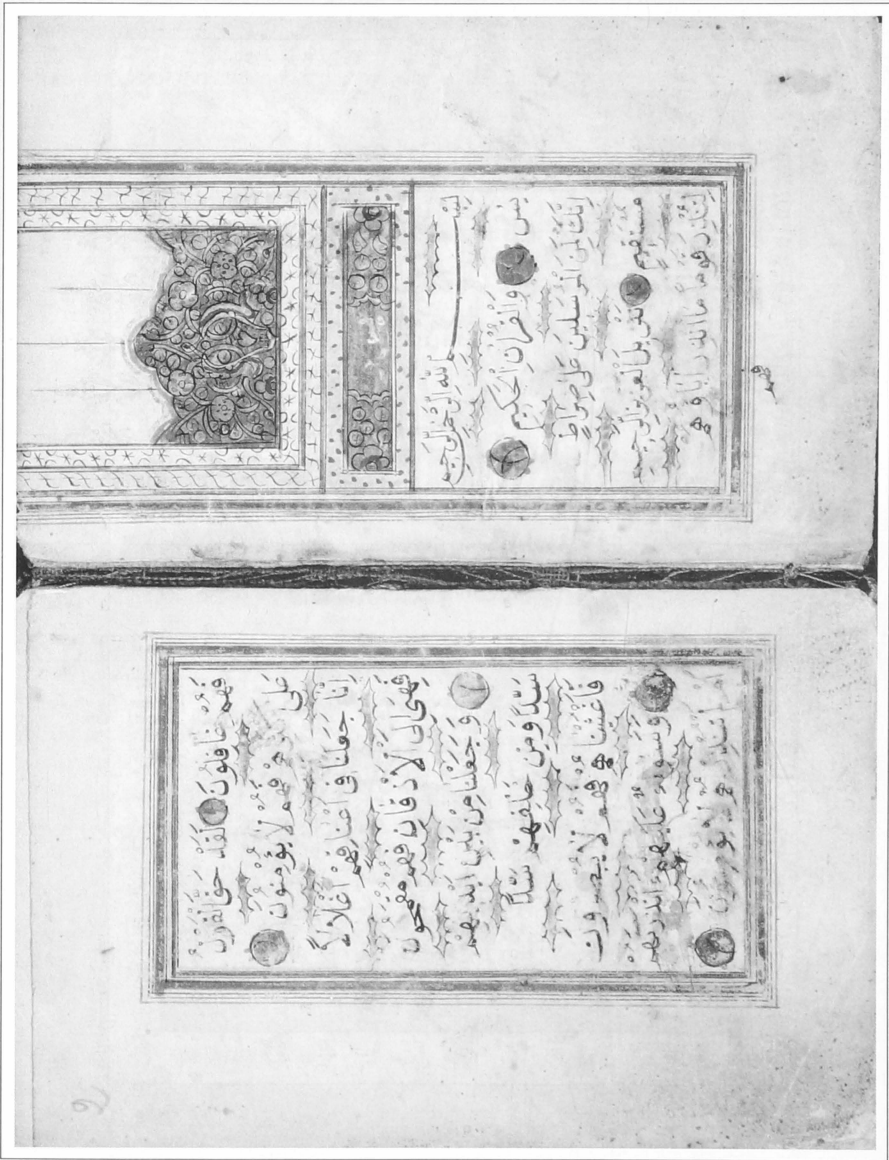 بِسْمِ اللهِ الرَّحْمٰنِ الرَّحِيمِ
يس وَالْقُرْآنِ الْحَكِيمِ
إِنَّكَ لَمِنَ الْمُرْسَلِينَ عَلَى صِرَاطٍ
مُسْتَقِيمٍ تَنْزِيلَ الْعَزِيزِ الرَّحِيمِ
لِتُنْذِرَ قَوْمًا مَا أُنْذِرَ آبَاؤُهُمْ
فهم
فَهُمْ غَافِلُونَ لَقَدْ حَقَّ الْقَوْلُ
عَلَى أَكْثَرِهِمْ فَهُمْ لَا يُؤْمِنُونَ
إِنَّا جَعَلْنَا فِي أَعْنَاقِهِمْ أَغْلَالًا
فَهِيَ إِلَى الْأَذْقَانِ فَهُمْ مُقْمَحُونَ
وَجَعَلْنَا مِنْ بَيْنِ أَيْدِيهِمْ
سَدًّا وَمِنْ خَلْفِهِمْ سَدًّا
فَأَغْشَيْنَاهُمْ فَهُمْ لَا يُبْصِرُونَ
وَسَوَاءٌ عَلَيْهِمْ ءَأَنْذَرْتَهُمْ
أَمْ لَمْ تُنْذِرْهُمْ لَا يُؤْمِنُونَ